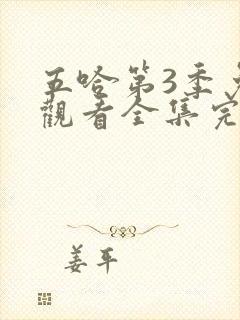 五哈第3季
觀看全集完
姜平